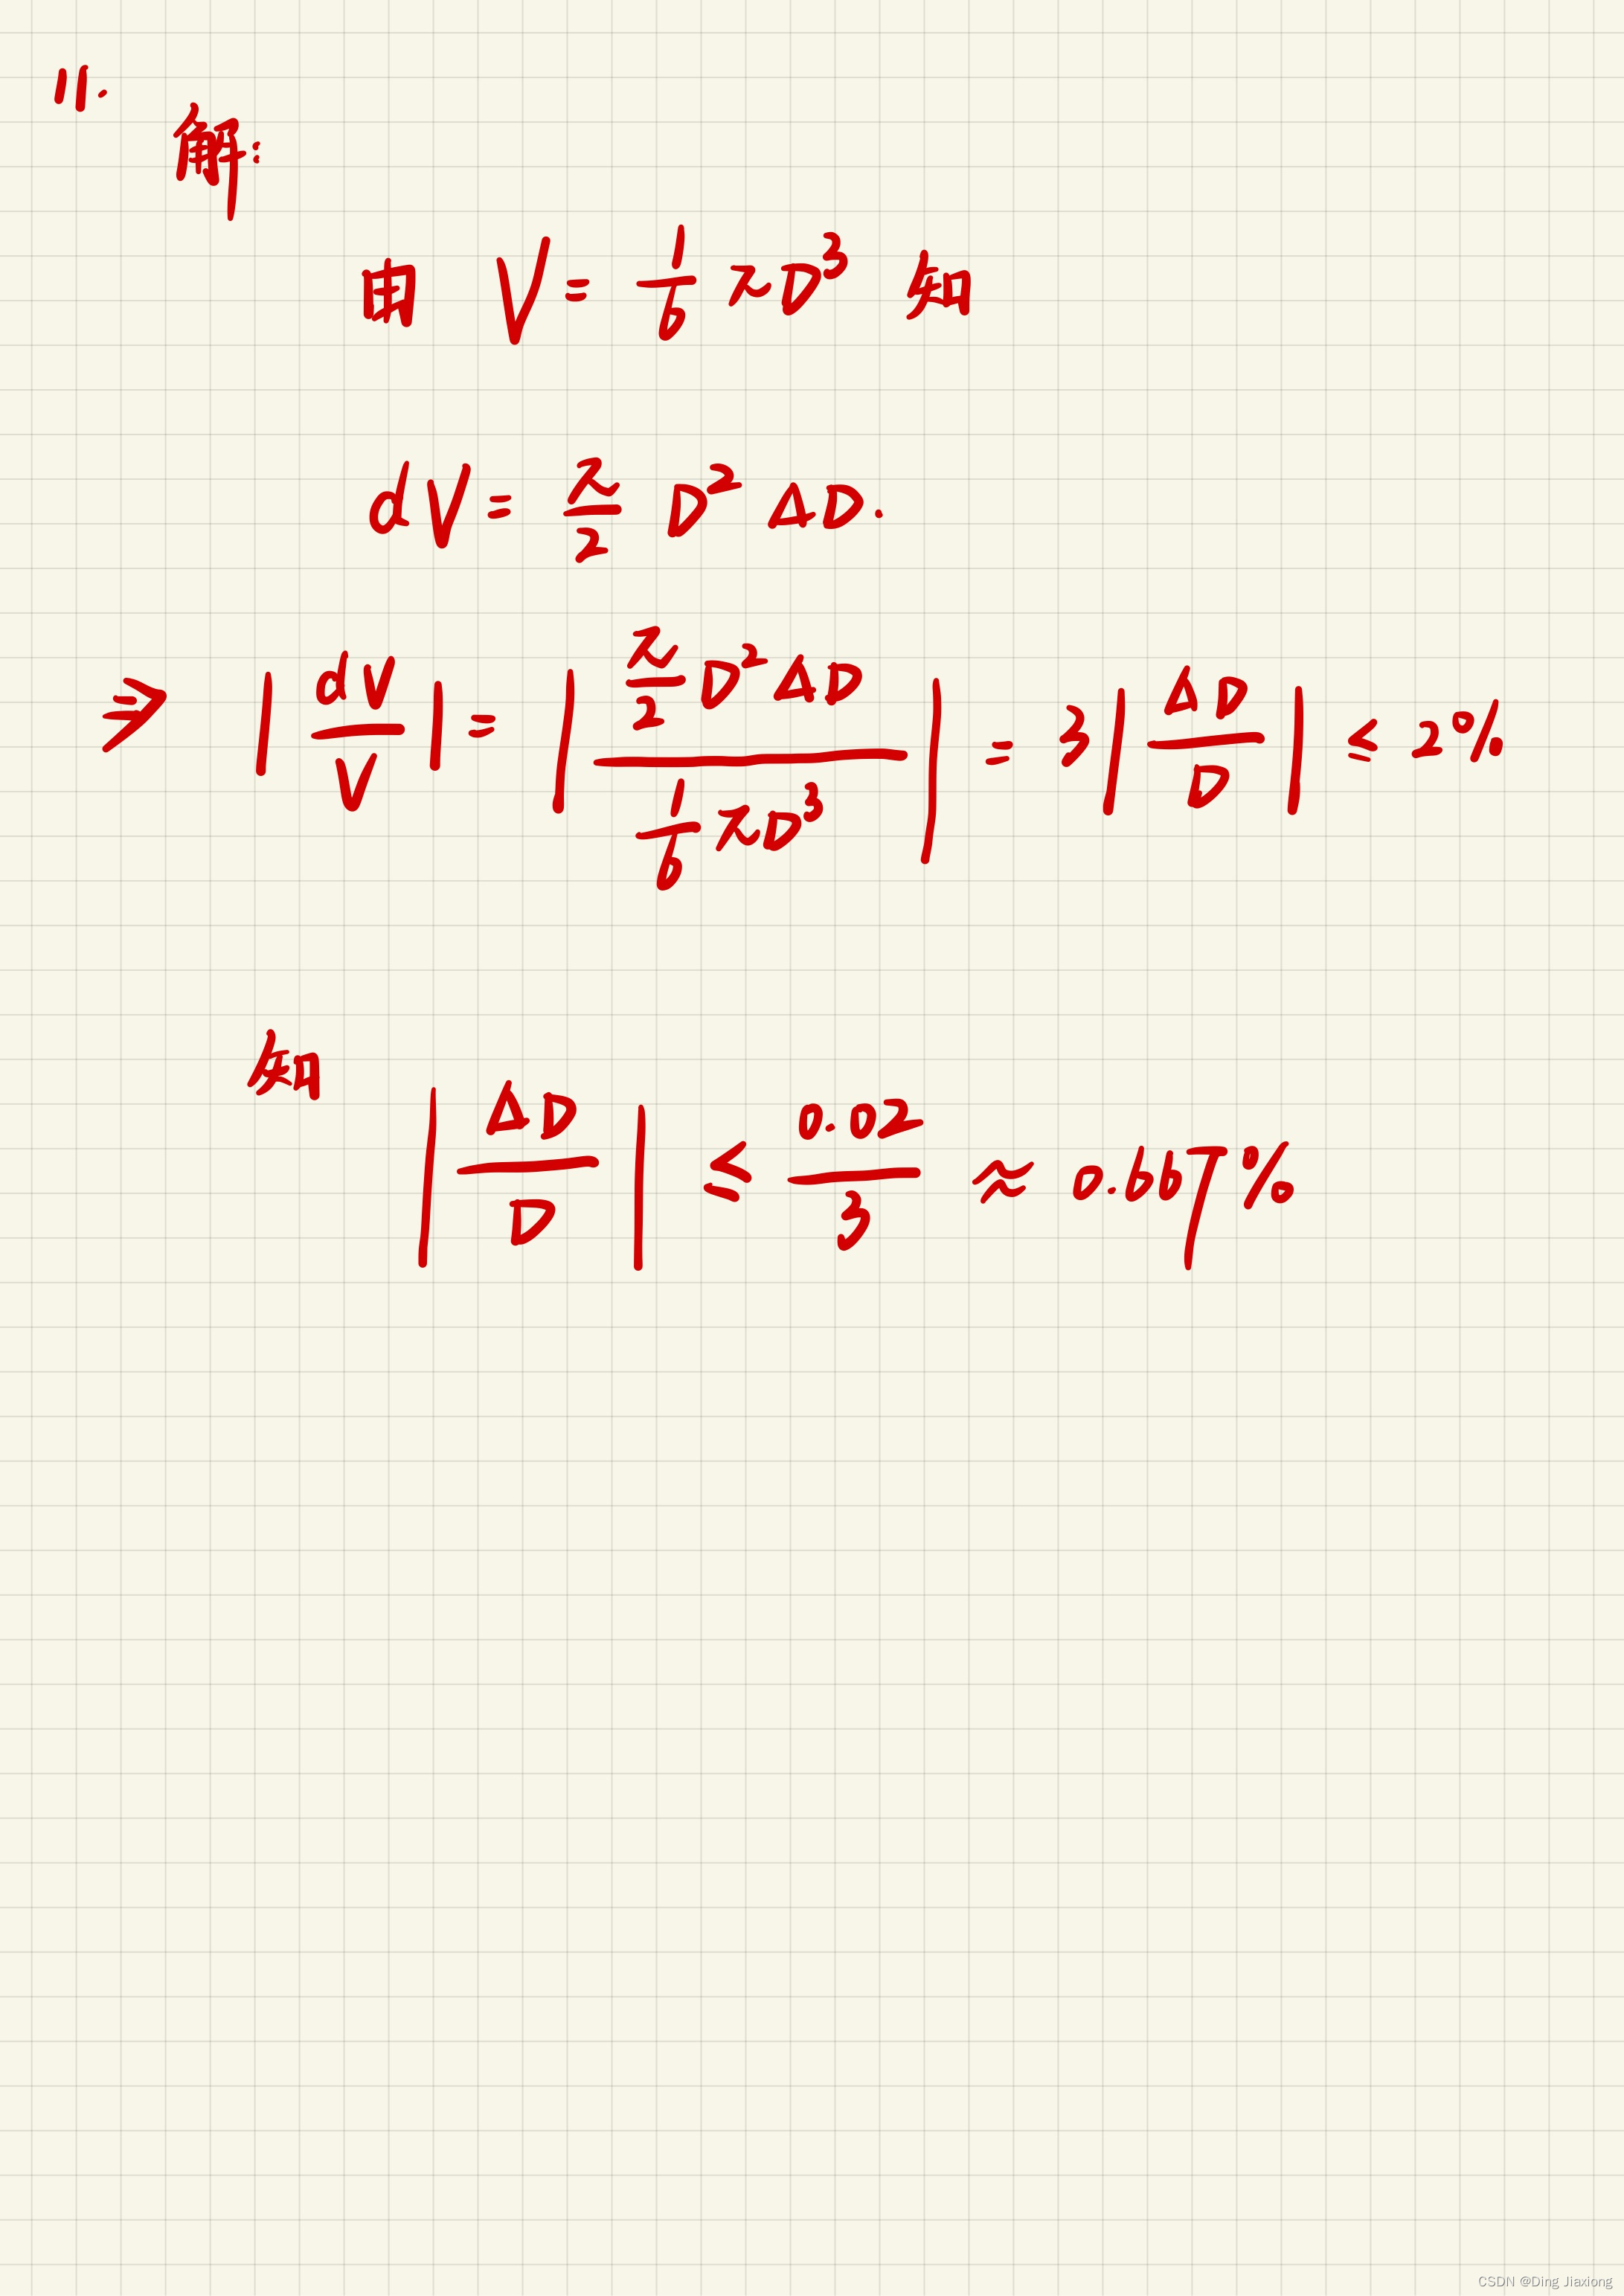 11.
解:
由 V = \frac{1}{6} π D^3 知
dV = \frac{π}{2} D^2 ΔD.
⇒ |\frac{dV}{V}| = |\frac{\frac{π}{2} D^2 ΔD}{\frac{1}{6} π D^3}| = 3 |\frac{ΔD}{D}| ≤ 2%
知
|\frac{ΔD}{D}| ≤ \frac{0.02}{3} ≈ 0.667%
CSDN @Ding Jiaxiong